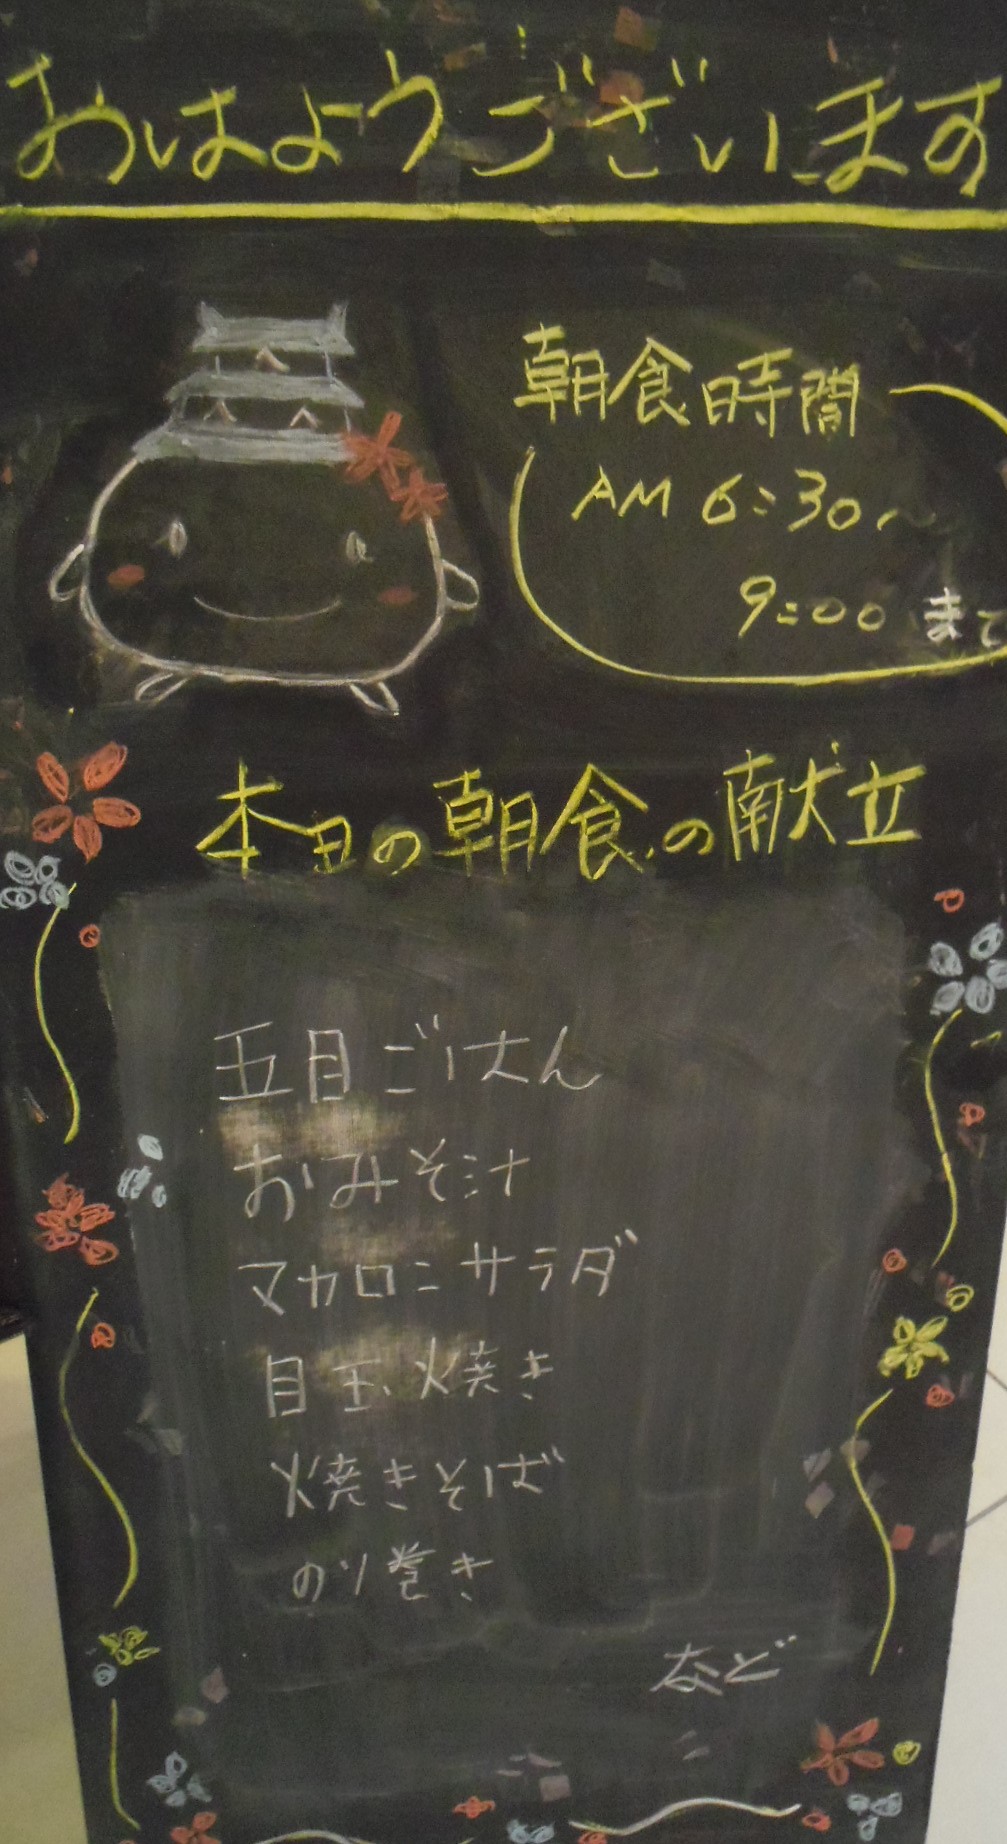 おはようございます
朝食時間
AM 6:30～
9:00 まで
本日の朝食の献立
五目ごはん
おみそ汁
マカロニサラダ
目玉焼き
焼きそば
のり巻き
など